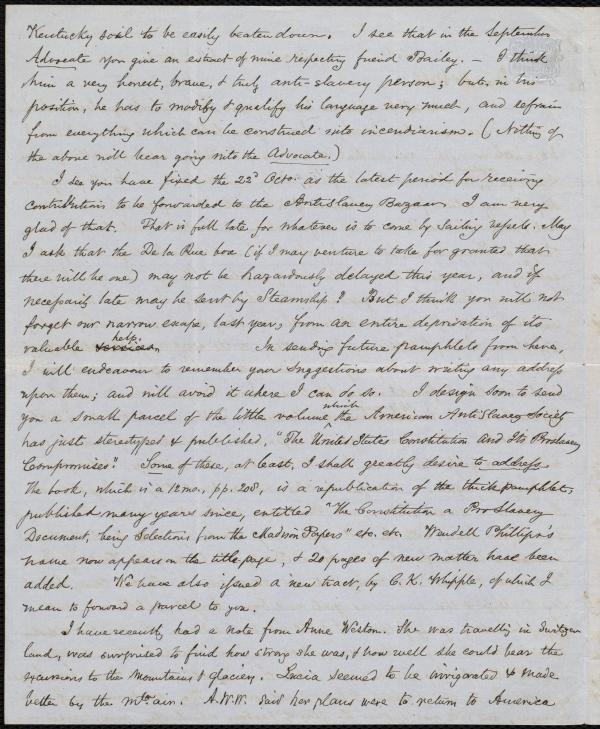 Kentucky soil to be easily beaten down. I see that in the September
Advocate you give an extract of mine respecting friend Bailey. – I think
him a very honest, brave, & truly anti-slavery person; but, in his
position, he has to modify & qualify his language very much, and refrain
from everything which can be construed into incendiarism. (Nothing of
the above will bear going into the Advocate.)
I see you have fixed the 22d Octo. as the latest period for receiving
contributions to be forwarded to the Antislavery Bazaar. I am very
glad of that. That is full late for whatever is to come by sailing vessels. May
I ask that the De la Rue box (if I may venture to take for granted that
there will be one) may not be hazardously delayed this year, and if
necessarily late may be sent by Steamship? But I think you will not
forget our narrow escape, last year, from an entire deprivation of its
valuable services help. In sending future pamphlets from here,
I will endeavour to remember your suggestions about writing any address
upon them; and will avoid it where I can do so. I design soon to send
you a small parcel of the little volume which the American AntiSlavery Society
has just stereotyped & published, "The United States Constitution and Its Proslavery
Compromises". Some of these, at least, I shall greatly desire to address
The book, which is a 12mo., pp. 208, is a republication of the thick pamphlet,
published many years since, entitled "The Constitution a Pro Slavery
Document, being Selections from the Madison Papers" etc. etc. Wendell Phillips's
name now appears on the title page, & 20 pages of new matter have been
added. We have also issued a new tract, by C. K. Whipple, of which I
mean to forward a parcel to you.
I have recently had a note from Anne Weston. She was travelling in Switzer-
land, was surprised to find how strong she was, & how well she could bear the
excursions to the Mountains & glaciers. Lucia seemed to be invigorated & made
better by the mtn air. A.W.W. said her plans were to return to America